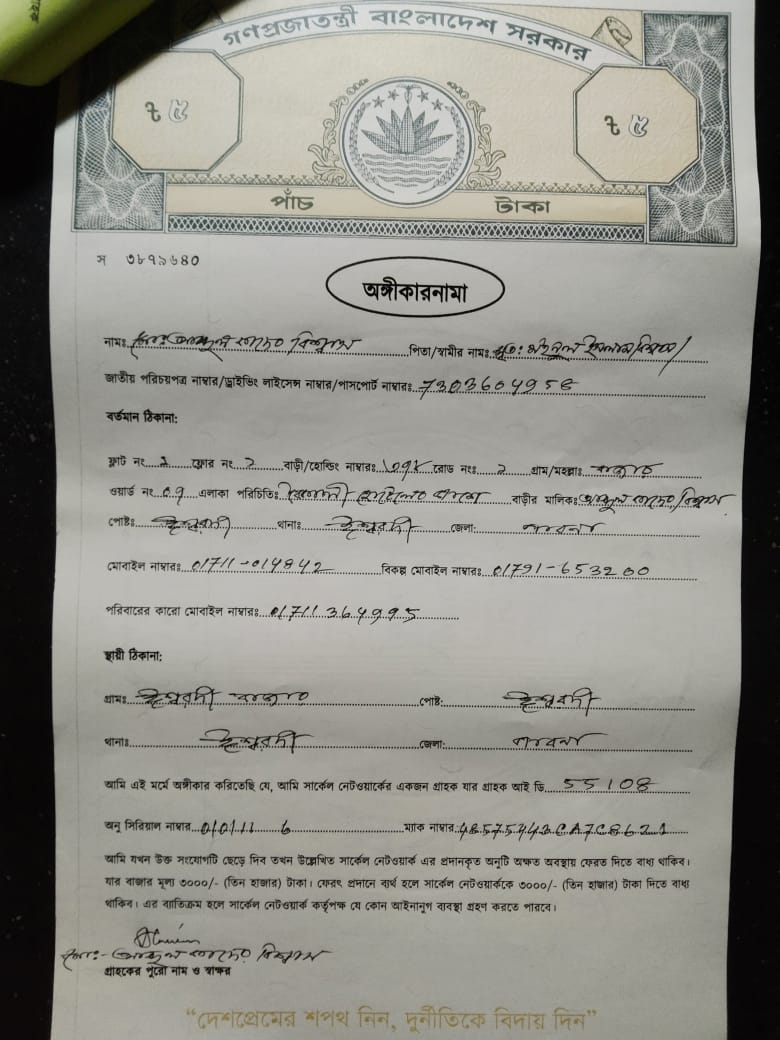 গণপ্রজাতন্ত্রী বাংলাদেশ সরকার
৳ ৫ ৳ ৫
পাঁচ টাকা
স ৩৮৭৯৬৪০
অঙ্গীকারনামা
নামঃ মোঃ বিশ্বাস পিতা/স্বামীর নামঃ মৃতঃ ইসলাম বিশ্বাস
জাতীয় পরিচয়পত্র নাম্বার/ড্রাইভিং লাইসেন্স নাম্বার/পাসপোর্ট নাম্বারঃ 7303604958
বর্তমান ঠিকানা:
ফ্লাট নং ফ্লোর নং ২ বাড়ী/হোল্ডিং নাম্বারঃ রোড নং গ্রাম/মহল্লাঃ বাজার
ওয়ার্ড নং ০৭ এলাকা পরিচিতিঃ হোটেলের পাশে বাড়ীর মালিকঃ বিশ্বাস
পোষ্টঃ ঈশ্বরদী থানাঃ ঈশ্বরদী জেলা: পাবনা
মোবাইল নাম্বারঃ 01711-014842 বিকল্প মোবাইল নাম্বারঃ 01791-653200
পরিবারের কারো মোবাইল নাম্বারঃ 01711364995
স্থায়ী ঠিকানা:
গ্রামঃ ঈশ্বরদী বাজার পোষ্ট: ঈশ্বরদী
থানাঃ ঈশ্বরদী জেলা: পাবনা
আমি এই মর্মে অঙ্গীকার করিতেছি যে, আমি সার্কেল নেটওয়ার্কের একজন গ্রাহক যার গ্রাহক আই ডি 55108
অনু সিরিয়াল নাম্বার 010111 6 ম্যাক নাম্বার 48575443CA7C8621
আমি যখন উক্ত সংযোগটি ছেড়ে দিব তখন উল্লেখিত সার্কেল নেটওয়ার্ক এর প্রদানকৃত অনুটি অক্ষত অবস্থায় ফেরত দিতে বাধ্য থাকিব।
যার বাজার মূল্য ৩০০০/- (তিন হাজার) টাকা। ফেরৎ প্রদানে ব্যর্থ হলে সার্কেল নেটওয়ার্ককে ৩০০০/- (তিন হাজার) টাকা দিতে বাধ্য
থাকিব। এর ব্যতিক্রম হলে সার্কেল নেটওয়ার্ক কর্তৃপক্ষ যে কোন আইনানুগ ব্যবস্থা গ্রহণ করতে পারবে।
মোঃ- বিশ্বাস
গ্রাহকের পুরো নাম ও স্বাক্ষর
“দেশপ্রেমের শপথ নিন, দুর্নীতিকে বিদায় দিন”